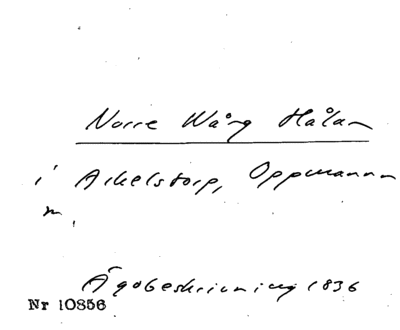 Norre Wång Hålan
i Arkelstorp, Oppmanna
m.
Ägobeskrivning 1836
Nr 10856